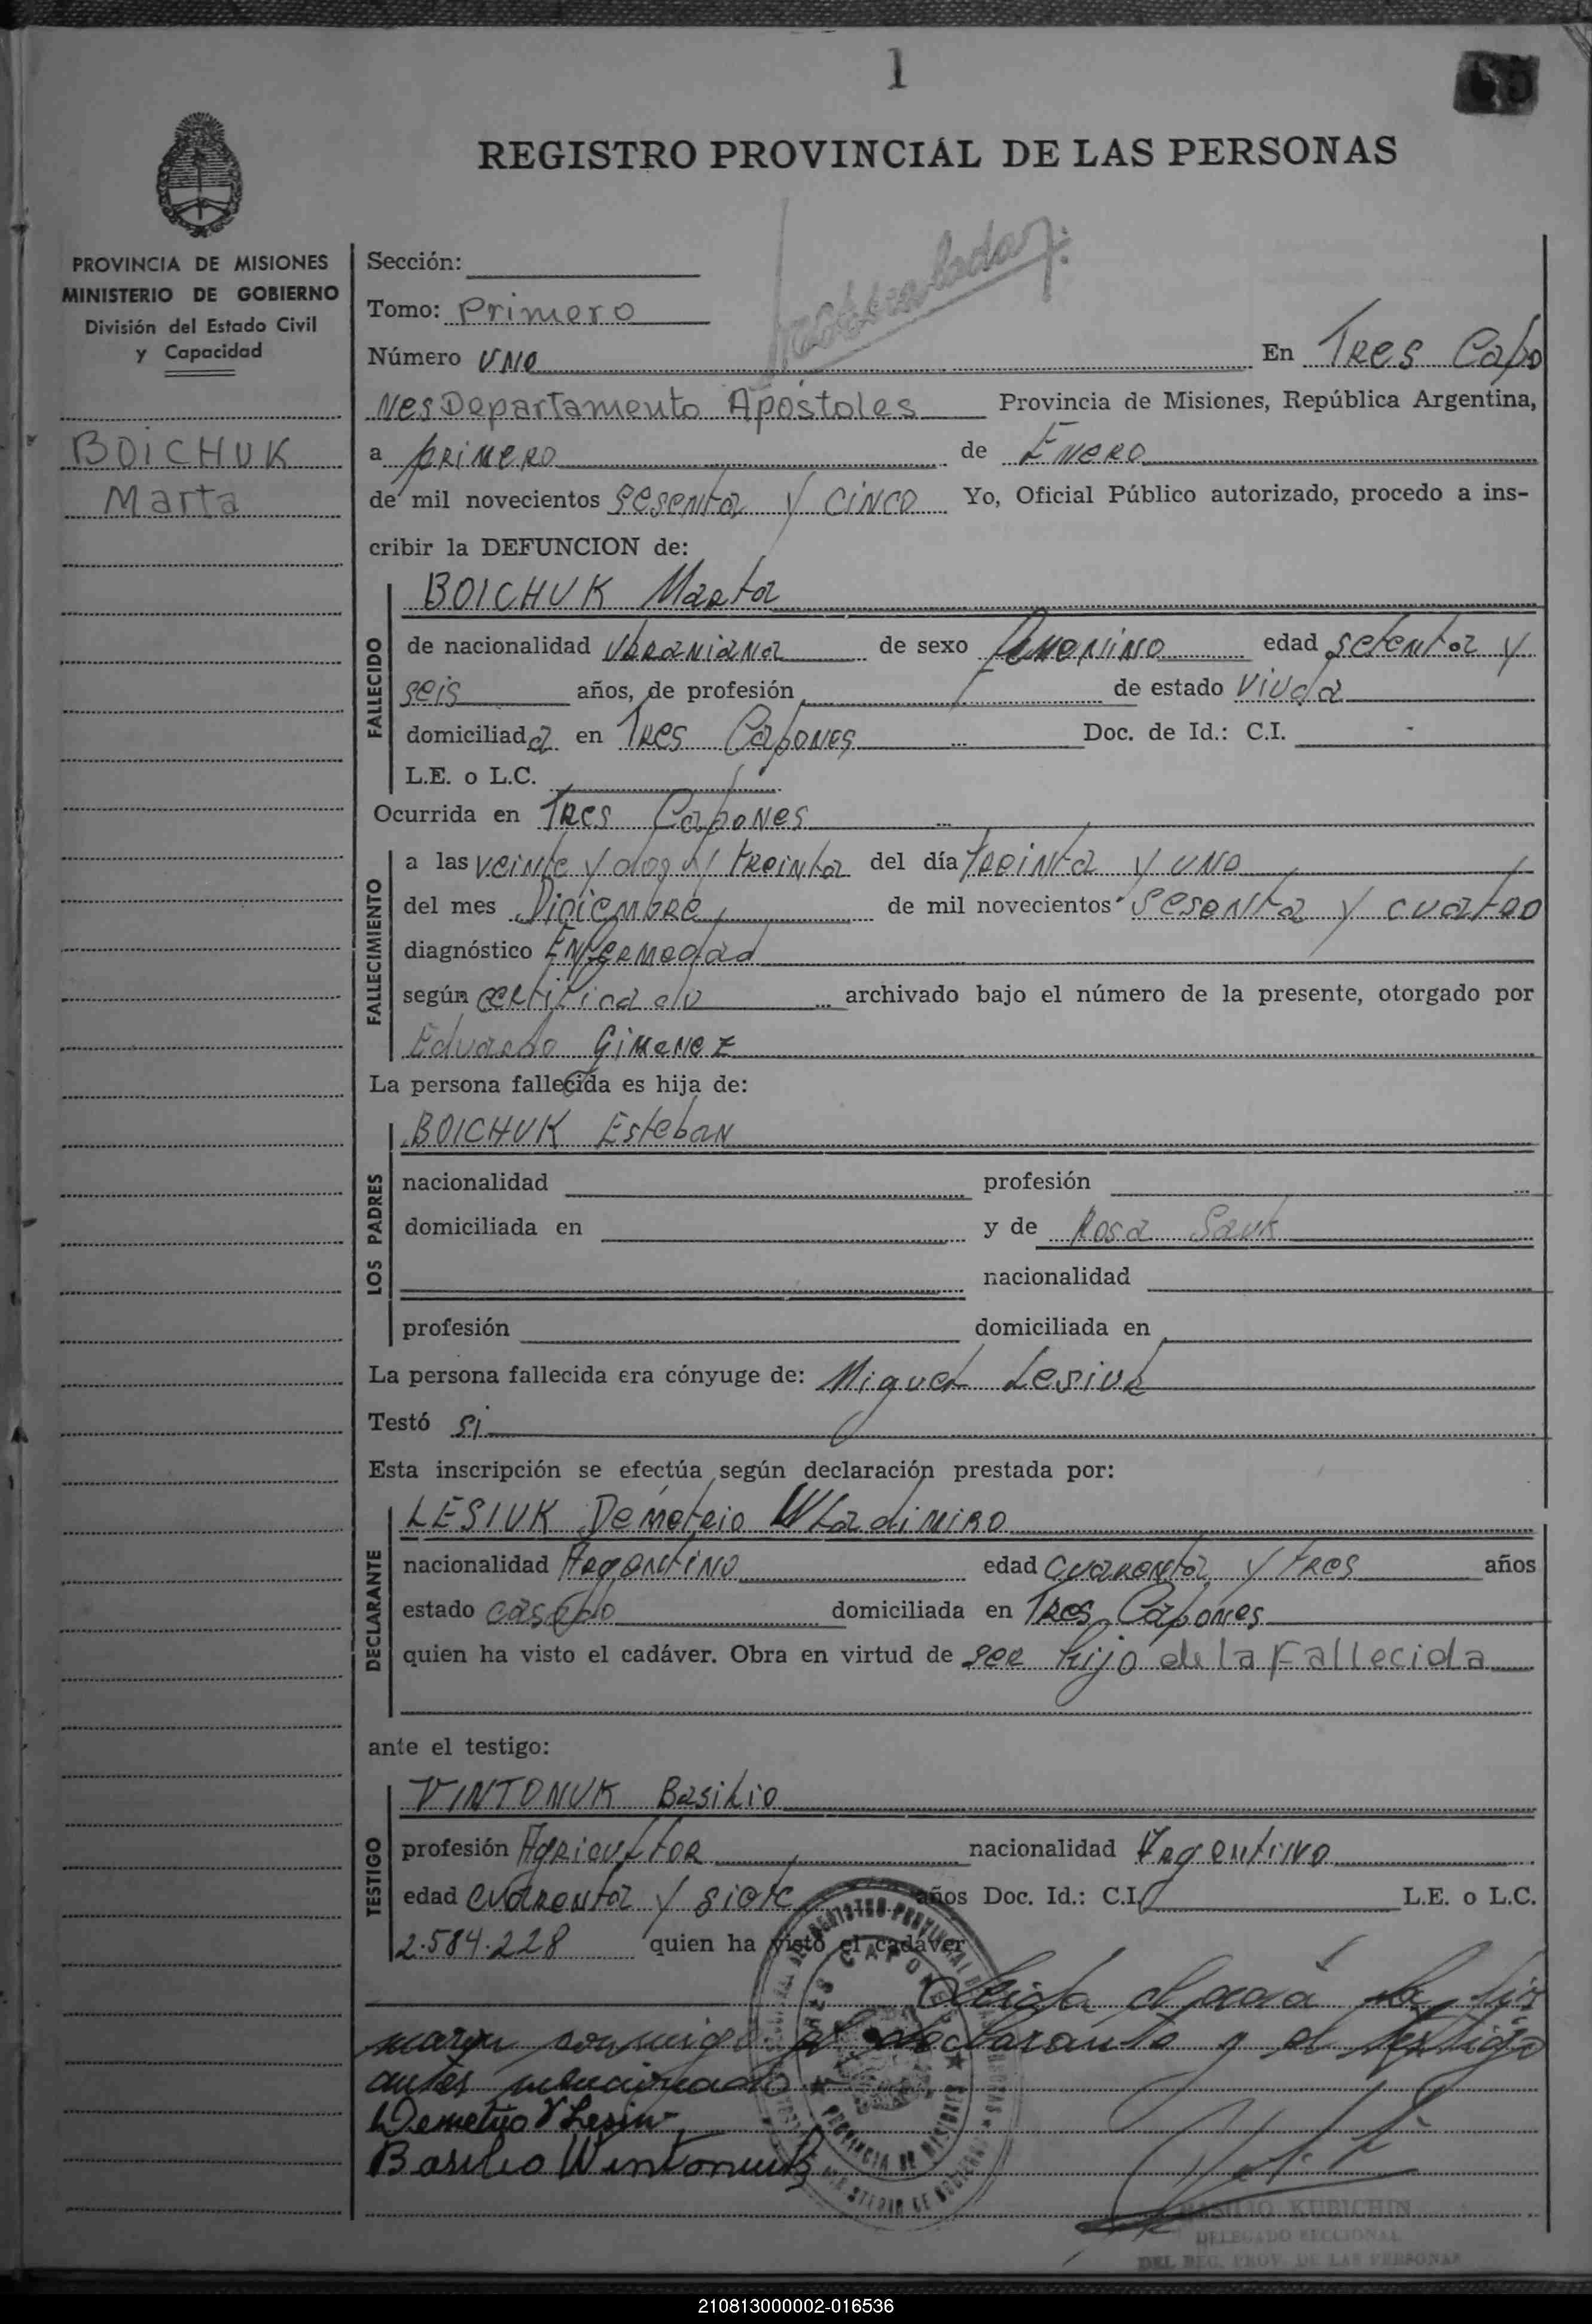 1
REGISTRO PROVINCIAL DE LAS PERSONAS
PROVINCIA DE MISIONES
MINISTERIO DE GOBIERNO
División del Estado Civil
y Capacidad
BOICHUK
Marta
Sección:
Tomo: Primero
Número UNO En Tres Capo
nes Departamento Apostoles Provincia de Misiones, República Argentina,
a primero de Enero
de mil novecientos sesenta y cinco Yo, Oficial Público autorizado, procedo a ins-
cribir la DEFUNCION de:
FALLECIDO
BOICHUK Marta
de nacionalidad Ukraniana de sexo femenino edad setenta y
seis años, de profesión de estado Viuda
domiciliada en Tres Capones Doc. de Id.: C.I. -
L.E. o L.C.
Ocurrida en Tres Capones
FALLECIMIENTO
a las veinte y dos y treinta del día treinta y uno
del mes Diciembre de mil novecientos sesenta y cuatro
diagnóstico Enfermedad
según certificado archivado bajo el número de la presente, otorgado por
Eduardo Gimenez
La persona fallecida es hija de:
LOS PADRES
BOICHUK Esteban
nacionalidad profesión
domiciliada en y de Rosa Sauk
nacionalidad
profesión domiciliada en
La persona fallecida era cónyuge de: Miguel Lesiuk
Testó si
Esta inscripción se efectúa según declaración prestada por:
DECLARANTE
LESIUK Demetrio Wladimiro
nacionalidad Argentino edad cuarenta y tres años
estado casado domiciliada en Tres Capones
quien ha visto el cadáver. Obra en virtud de ser hijo de la Fallecida
ante el testigo:
TESTIGO
VINTONUK Basilio
profesión Agricultor nacionalidad Argentino
edad cuarenta y siete años Doc. Id.: C.I. L.E. o L.C.
2.584.228 quien ha visto el cadáver
Leida el acta la fir
maron conmigo el declarante y el testigo
antes mencionado
Demetrio V Lesiu
Basilio Wintoniuk
BASILIO KUBICHIN
DELEGADO SECCIONAL
DEL REG. PROV. DE LAS PERSONAS
210813000002-016536